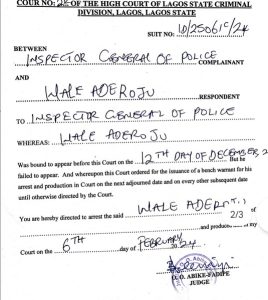 COUR NO: 28 OF THE HIGH COURT OF LAGOS STATE CRIMINAL
DIVISION, LAGOS, LAGOS STATE
SUIT NO: ID/25061C/24
BETWEEN
INSPECTOR GENERAL OF POLICE
COMPLAINANT
AND
WALE ADEROJU
RESPONDENT
TO INSPECTOR GENERAL OF POLICE
WHEREAS: WALE ADEROJU
Was bound to appear before this Court on the 12TH DAY OF DECEMBER, 2
But he
failed to appear. And whereupon this Court ordered for the issuance of a bench warrant for his
arrest and production in Court on the next adjourned date and on every other subsequent date
until otherwise directed by the Court.
You are hereby directed to arrest the said WALE
2/3 of
and produce in my
Court on the 6TH day of FEBRUARY 2024
O. O. ABIKE-FADIPE
JUDGE